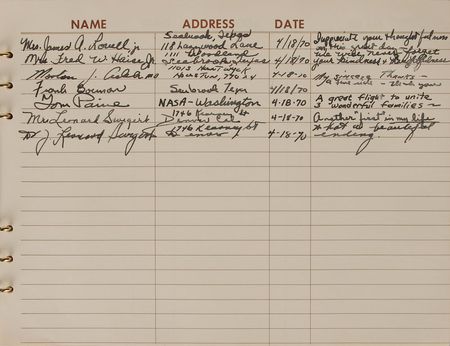 NAME ADDRESS DATE
Mrs. James A. Lovell, Jr. Seabrook, Texas 118 Lazywood Lane 4/18/70 I appreciate your thoughtfulness on this great day
Mrs. Fred W. Haise, Jr. 1111 Woodland Seabrook, Texas 4/18/70 We will never forget your kindness &
4-18-70 My sincere Thanks —
Frank Borman Seabrook Texas 4/18/70
Tom Paine NASA-Washington 4-18-70 A great flight to unite wonderful families
Mrs Leonard Swigert 1746 Kearney St Denver Col. 4-18-70 Another "first" in my life
Dr J Leonard Swigert 1746 Kearney St Denver 4-18-70 What a beautiful ending.